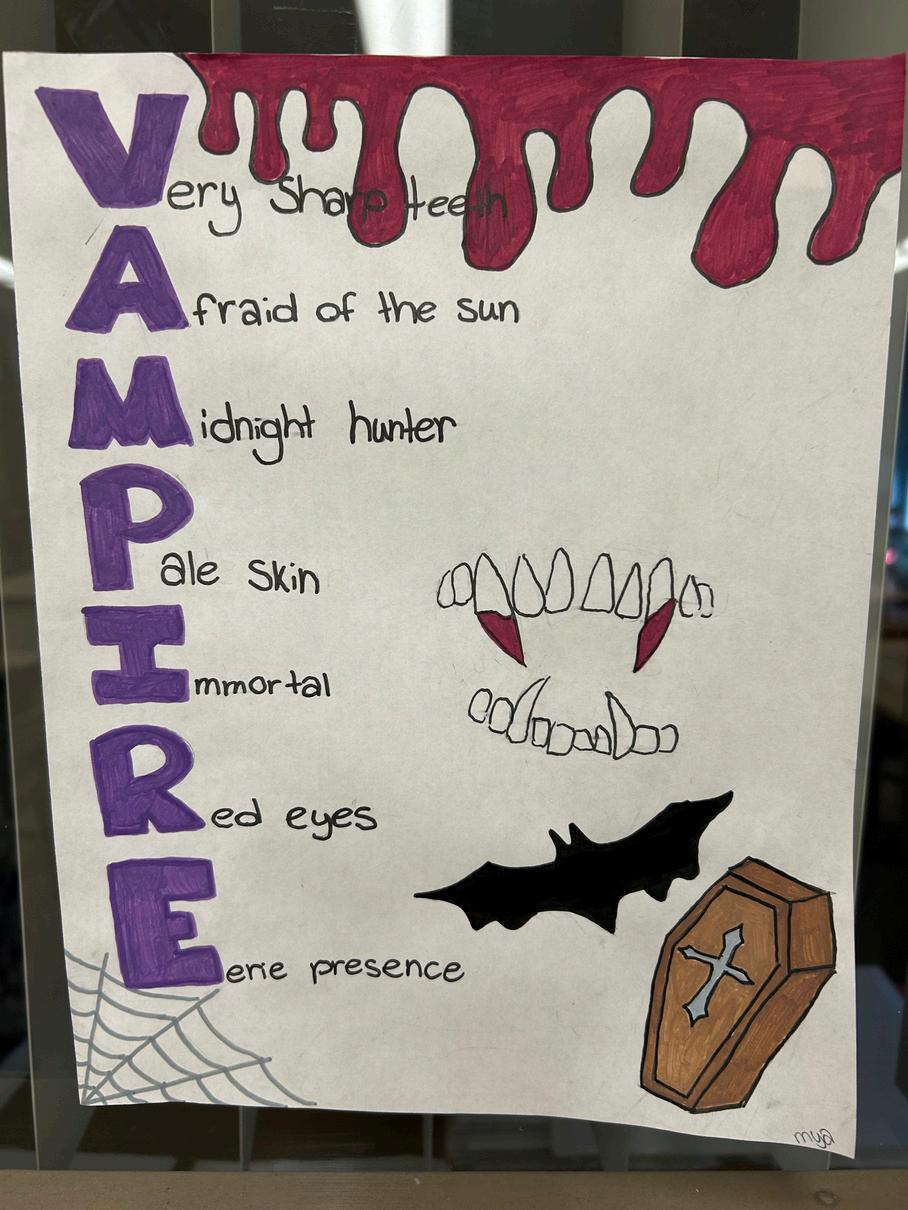 Very Sharp teeth
Afraid of the sun
Midnight hunter
Pale Skin
Immortal
Red eyes
Eerie presence
mya